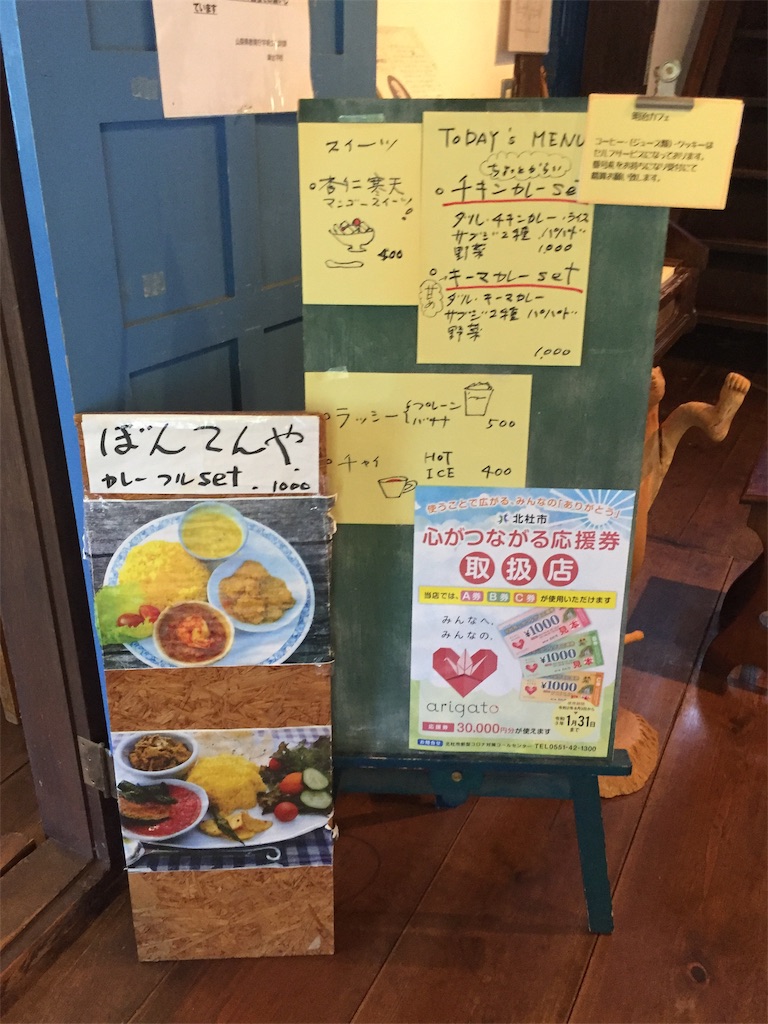 ています
スイーツ
杏仁寒天
マンゴースイーツ
400
TODAY's MENU
ちょっとからい
チキンカレーset
ダル・チキンカレー・ライス
サブジ2種 パパド
野菜 1,000
キーマカレーset
甘め
ダル・キーマカレー
サブジ2種 パパド
野菜
1,000
明治カフェ
コーヒー・(ジュース類)・クッキーは
セルフサービスになっております。
番号札をお持ちになり受付にて
精算お願い致します。
ラッシー プレーン
バナナ 500
チャイ HOT
ICE 400
ぼんてんや
カレーフルset 1000
使うことで広がる、みんなの「ありがとう」
北杜市
心がつながる応援券
取扱店
当店では、A券 B券 C券 が使用いただけます
みんなへ、
みんなの。
¥1000 見本
¥1000 見本
¥1000
arigato
1月31日まで
応援券 30,000円分が使えます
TEL0551-42-1300